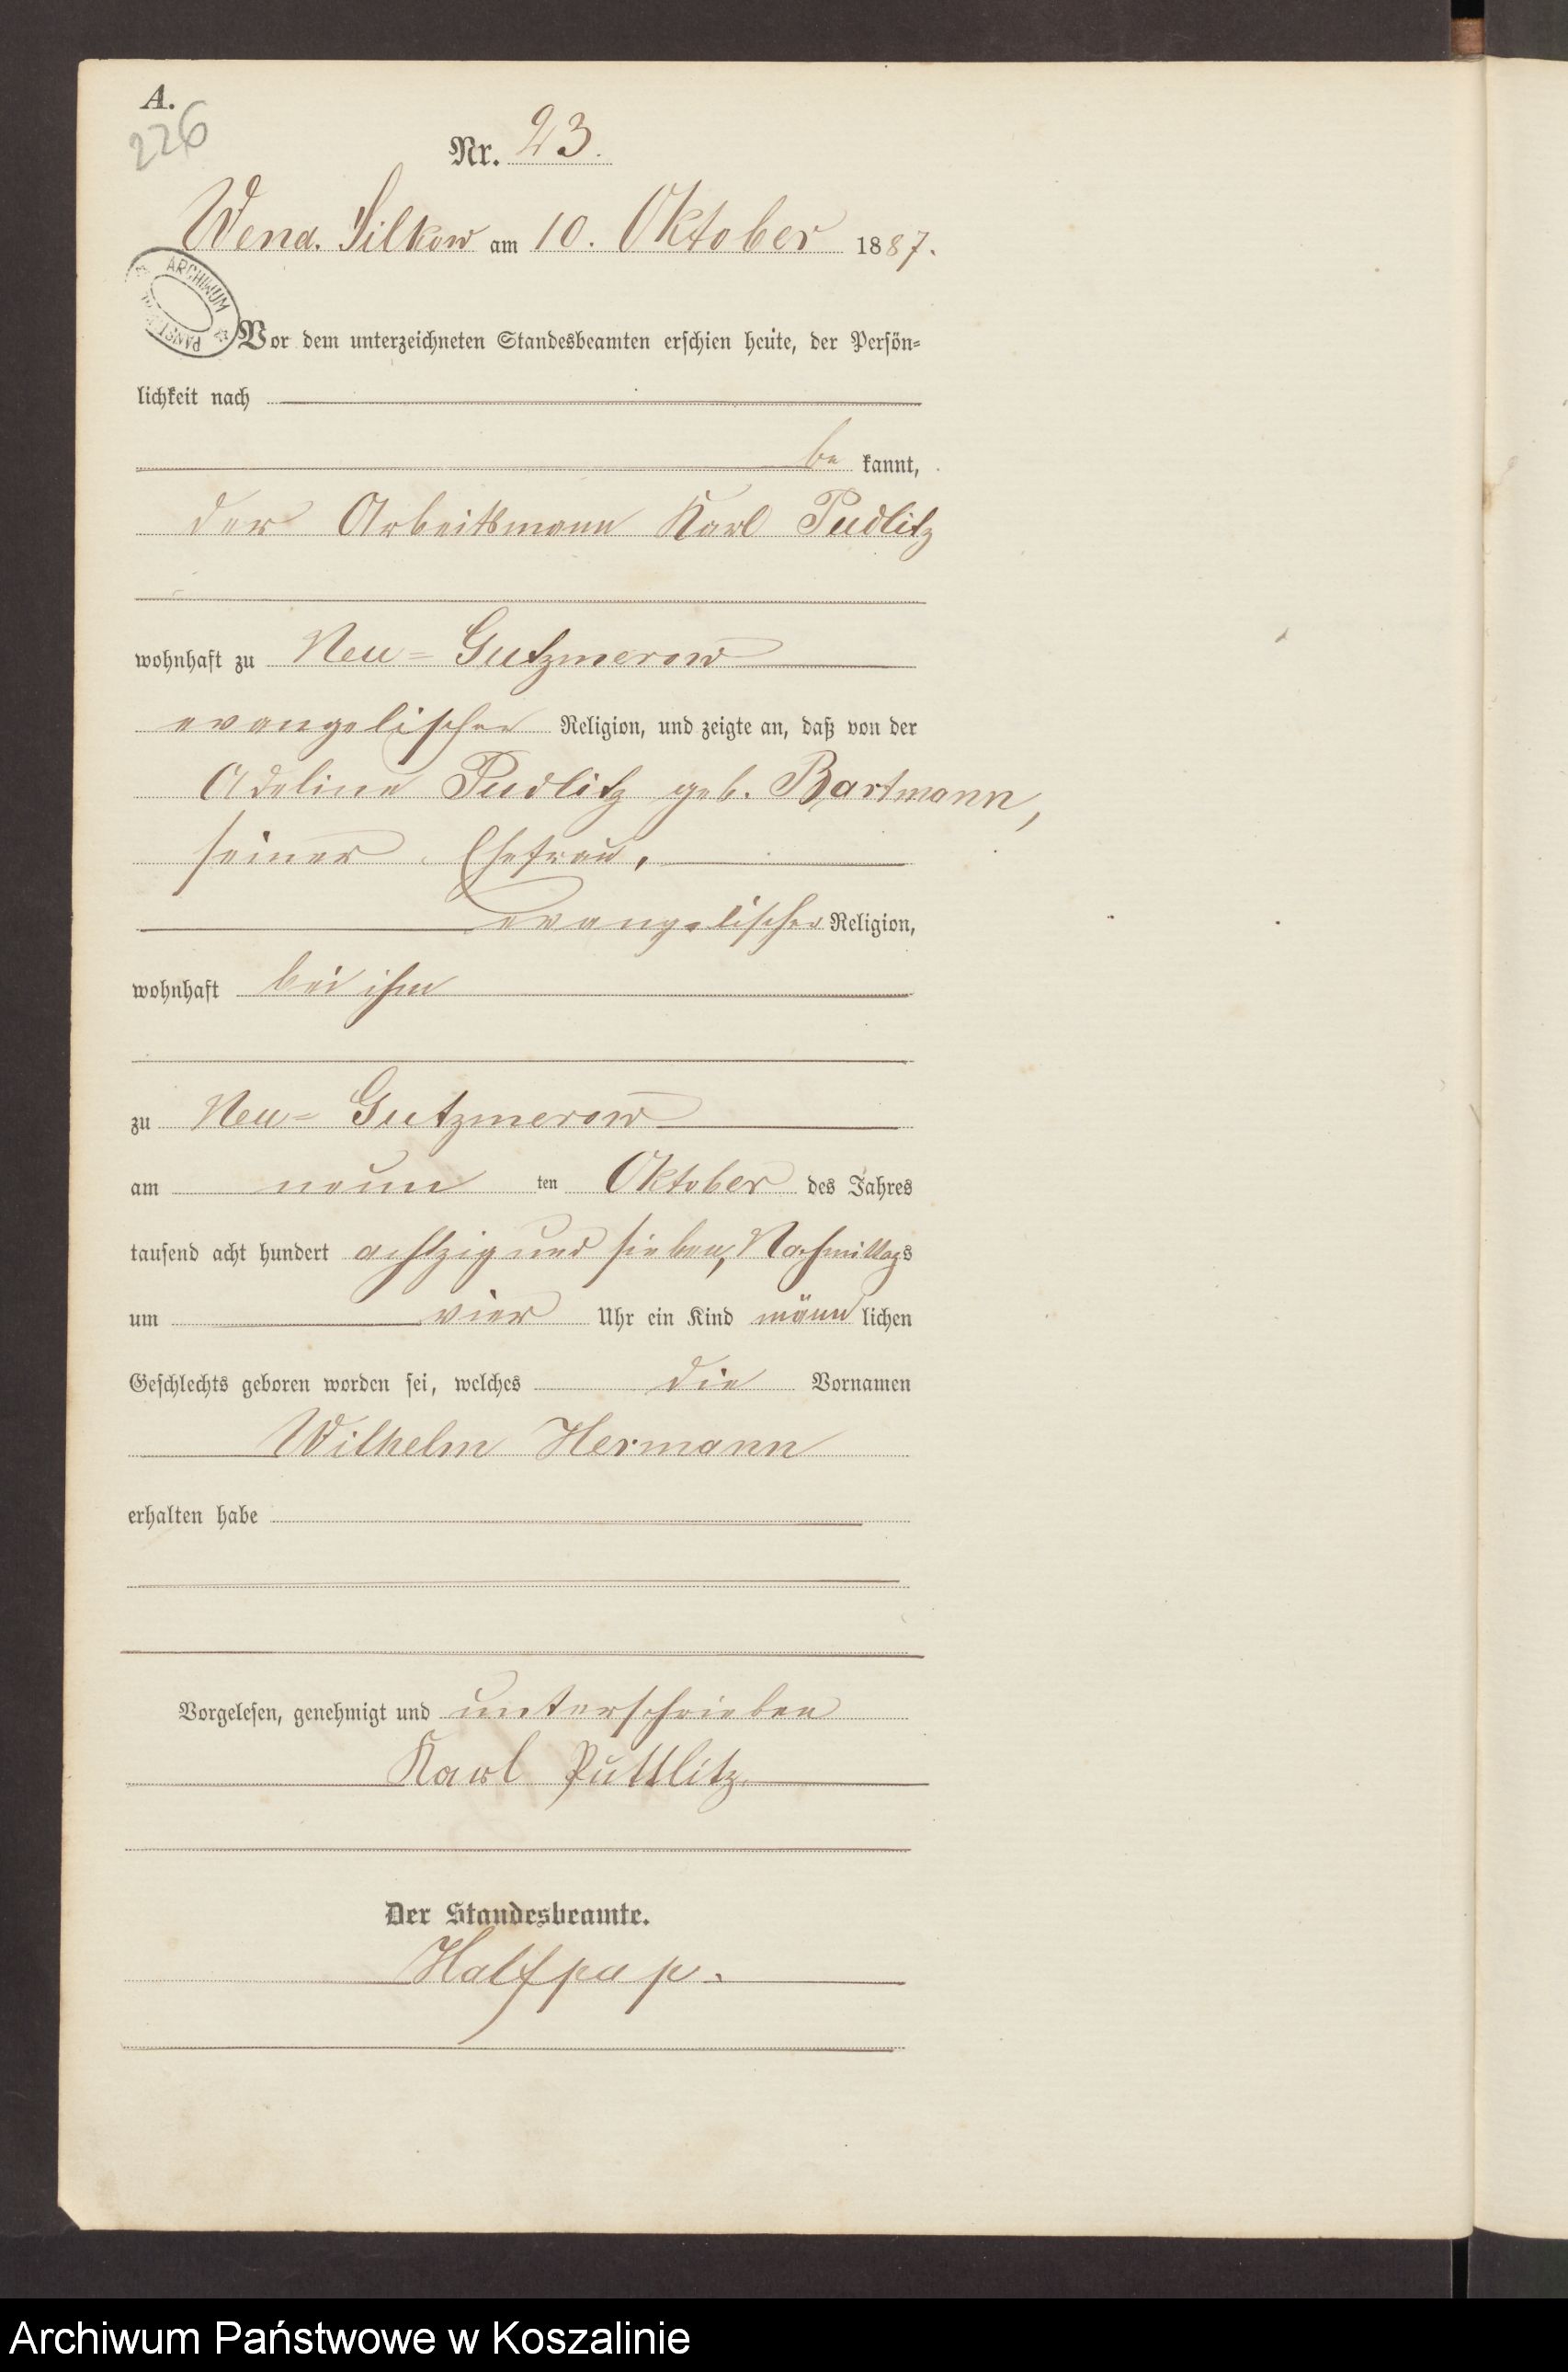 A.
226
Nr. 23.
Wend. Silkow am 10. Oktober 1887.
ARCHIWUM
Vor dem unterzeichneten Standesbeamten erschien heute, der Persön=
lichkeit nach
be kannt,
der Arbeitsmann Karl Pudlitz
wohnhaft zu Neu=Gutzmerow
evangelischer Religion, und zeigte an, daß von der
Adeline Pudlitz geb. Bartmann,
seiner Ehefrau,
evangelischer Religion,
wohnhaft bei ihm
zu Neu=Gutzmerow
am neun ten Oktober des Jahres
tausend acht hundert achtzig und sieben, Nachmittags
um vier Uhr ein Kind männ lichen
Geschlechts geboren worden sei, welches die Vornamen
Wilhelm Hermann
erhalten habe
Vorgelesen, genehmigt und unterschrieben
Karl Puttlitz.
Der Standesbeamte.
Halfpap.
Archiwum Państwowe w Koszalinie